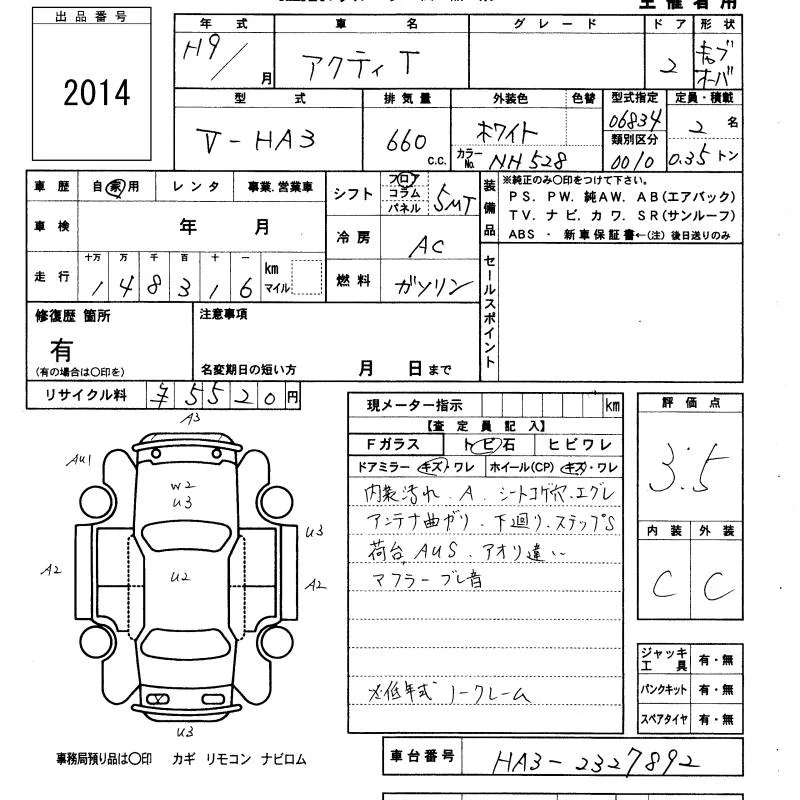 主催者用
出品番号
2014
年式 車名 グレード ドア 形状
H9/月 アクティT 2 キャブオーバ
型式 排気量 外装色 色替 型式指定 定員・積載
V-HA3 660 c.c. ホワイト 06834 2名
カラーNo. NH528 類別区分 0010 0.35トン
車歴 自家用 レンタ 事業.営業車
シフト フロア コラム パネル 5MT
装備品
※純正のみ○印をつけて下さい。
PS. PW. 純AW. AB(エアバック)
TV. ナビ. カワ. SR(サンルーフ)
ABS ・ 新車保証書←(注) 後日送りのみ
車検 年 月
冷房 AC
走行 十万 万 千 百 十 一 km マイル
148316
燃料 ガソリン
セールスポイント
修復歴 箇所
有
(有の場合は○印を)
注意事項
名変期日の短い方 月 日まで
リサイクル料 ¥5520円
現メーター指示 km
【査定員記入】
Fガラス トビ石 ヒビワレ
ドアミラー キズ・ワレ ホイール(CP) キズ・ワレ
内装汚れ.A.シートコゲ穴.エグレ
アンテナ曲ガリ.下廻り.ステップS
荷台AUS.アオリ違い
マフラーブレ音
低年式 ノークレーム
評価点
3.5
内装 外装
C C
ジャッキ工具 有・無
パンクキット 有・無
スペアタイヤ 有・無
A3
AU1
W2
U3
U3
A2
U2
A2
U3
U3
事務局預り品は○印 カギ リモコン ナビロム
車台番号 HA3-2327892